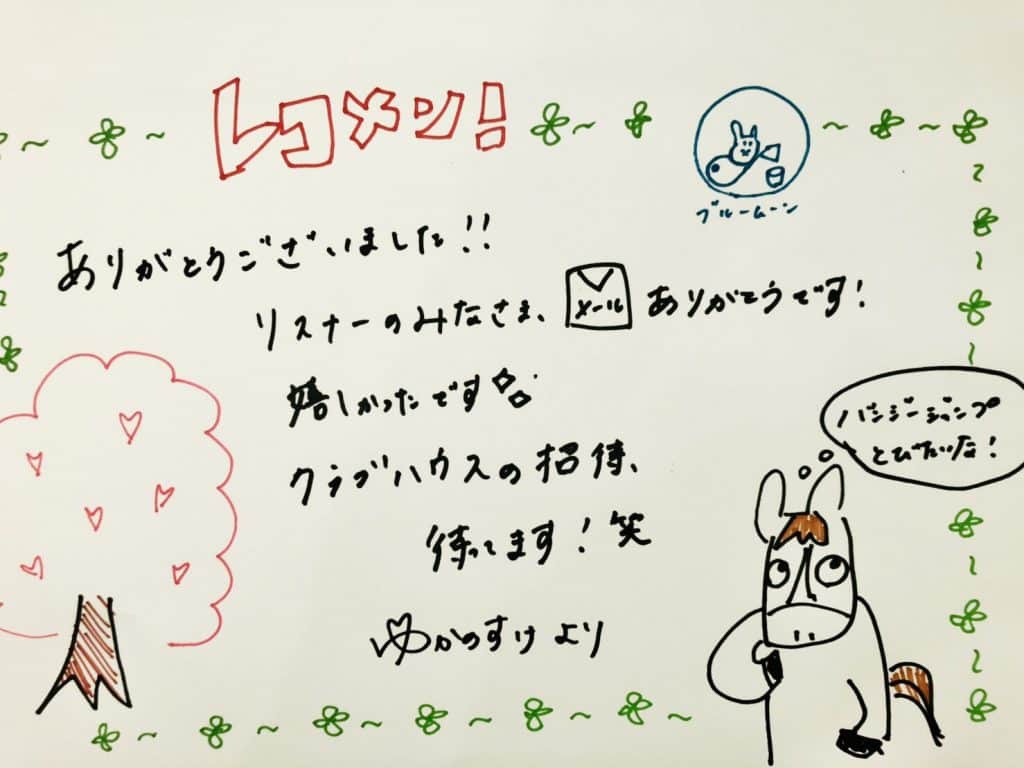 レコメン!
ブルームーン
ありがとうございました!!
リスナーのみなさま、メールありがとうです!
嬉しかったです
クラブハウスの招待、
待ってます!笑
ゆかのすけより
バンジージャンプ
とびたいな!